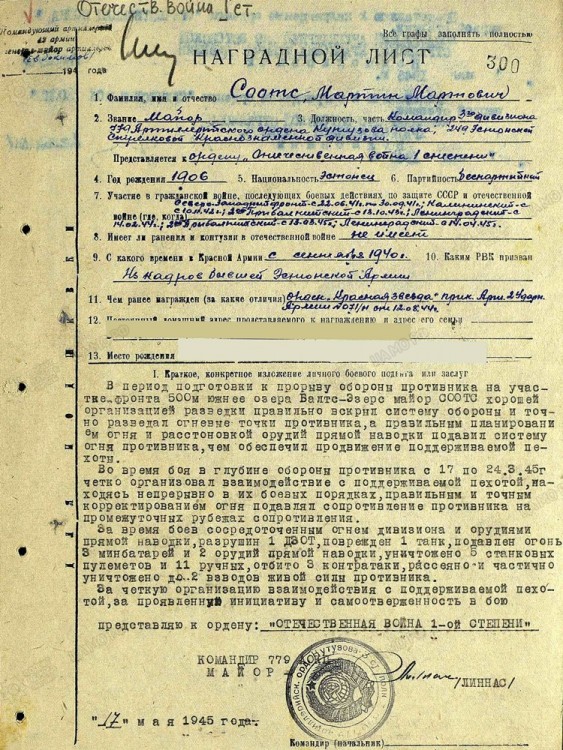 Отечеств. война I ст.
Все графы заполнять полностью
Командующий артиллерией
42 армии
генерал-майор артиллерии
194 года
НАГРАДНОЙ ЛИСТ
300
1. Фамилия, имя и отчество Соотс, Мартин Мартович
2. Звание Майор 3. Должность, часть Командир 3го дивизиона
779 Артиллерийского ордена Кутузова полка, 249 Эстонской
Стрелковой Краснознаменной дивизии.
Представляется к ордену „Отечественная война 1 степени"
4. Год рождения 1906 5. Национальность Эстонец 6. Партийность Беспартийный
7. Участие в гражданской войне, последующих боевых действиях по защите СССР и отечественной
Северо-Западный фронт-с 22.06.41г. по 30.09.41г.; Калининский-с
войне (где, когда)
14.02.44г.; 2ой Прибалтийский-с 13.03.45г.; Ленинградский-с 14.04.45г.
8. Имеет ли ранения и контузии в отечественной войне не имеет
9. С какого времени в Красной Армии с сентября 1940г. 10. Каким РВК призван
Из кадров бывшей Эстонской Армии
11. Чем ранее награжден (за какие отличия) орден „Красная звезда" прик. Арт. 2 Ударн.
Армии №071/н от 12.08.44г.
12. Постоянный домашний адрес представляемого к награждению и адрес его семьи
13. Место рождения
I. Краткое, конкретное изложение личного боевого подвига или заслуг
В период подготовки к прорыву обороны противника на учас-
тке фронта 500м южнее озера Валтс-Эзерс майор СООТС хорошей
организацией разведки правильно вскрыл систему обороны и точ-
но разведал огневые точки противника,а правильным планировани
ем огня и расстоновкой орудий прямой наводки подавил систему
огня противника,чем обеспечил продвижение поддерживаемой пе-
хоты.
Во время боя в глубине обороны противника с 17 по 24.3.45г
четко организовал взаимодействие с поддерживаемой пехотой,на-
ходясь непрерывно в их боевых порядках,правильным и точным
корректированием огня подавлял сопротивление противника на
промежуточных рубежах сопротивления.
За время боев сосредоточенным огнем дивизиона и орудиями
прямой наводки,разрушин 1 ДЗОТ,поврежден 1 танк,подавлен огонь
3 минбатарей и 2 орудий прямой наводки,уничтожено 5 станковых
пулеметов и 11 ручных,отбито 3 контратаки,рассеяно и частично
уничтожено до 2 взводов живой силы противника.
За четкую организацию взаимодействия с поддерживаемой пехо-
той,за проявленную инициативу и самоотверженность в бою
представляю к ордену: "ОТЕЧЕСТВЕННАЯ ВОЙНА 1-ой СТЕПЕНИ"
КОМАНДИР 779
МАЙОР
/ЛИННАС/
"17" мая 1945 года.
Командир (начальник)